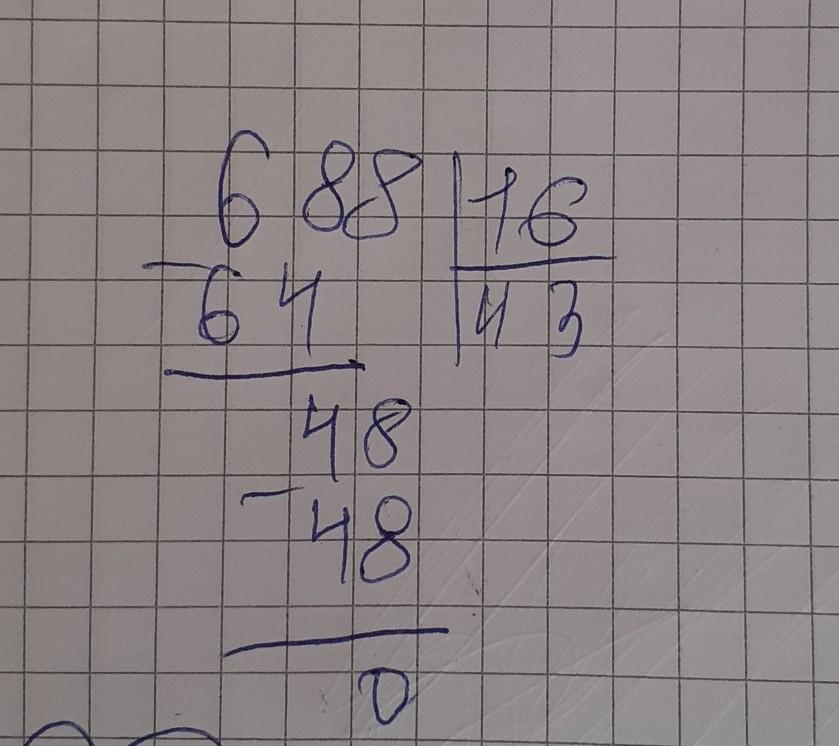 688 16
- 64 43
48
- 48
0